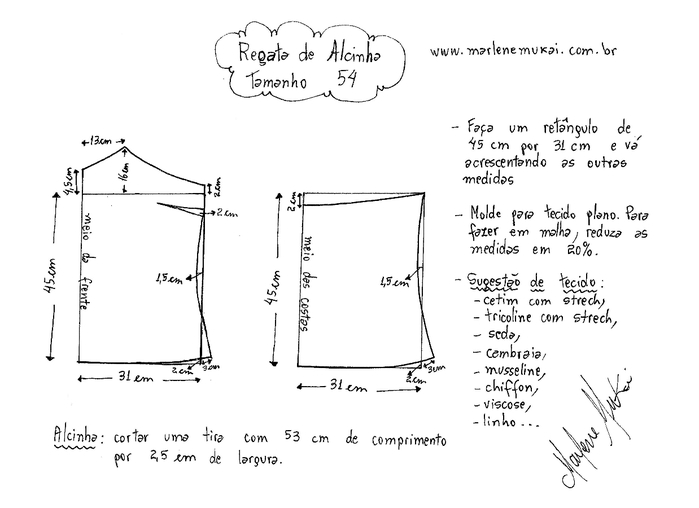 Regata de Alcinha
Tamanho 54
www.marlenemukai.com.br
- Faça um retângulo de
45 cm por 31 cm e vá
acrescentando as outras
medidas
- Molde para tecido plano. Para
fazer em malha, reduza as
medidas em 20%.
- Sugestão de tecido:
- cetim com strech,
- tricoline com strech,
- seda,
- cambraia,
- musseline,
- chiffon,
- viscose,
- linho...
13cm
4,5cm
16cm
2cm
2cm
45cm
meio da frente
1,5cm
2cm
3cm
31cm
2cm
45cm
meio das costas
1,5cm
2cm
3cm
31cm
Alcinha: cortar uma tira com 53 cm de comprimento
por 2,5 cm de largura.
Marlene Mukai